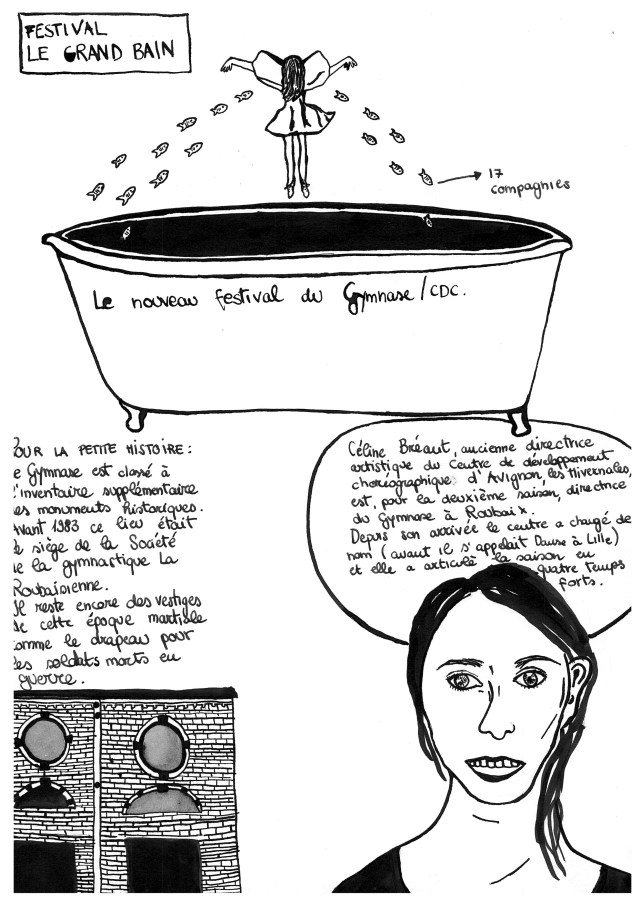 FESTIVAL
LE GRAND BAIN
17
compagnies
Le nouveau festival du Gymnase/CDC.
OUR LA PETITE HISTOIRE :
e Gymnase est classé à
l'inventaire supplémentaire
es monuments historiques.
Avant 1983 ce lieu était
le siège de la Société
de la gymnastique La
Roubaisienne.
Il reste encore des vestiges
de cette époque martiale
comme le drapeau pour
les soldats morts en
guerre.
Céline Bréaut, ancienne directrice
artistique du Centre de développement
chorégraphique d'Avignon, les Hivernales,
est, pour la deuxième saison, directrice
du Gymnase à Roubaix.
Depuis son arrivée le centre a changé de
nom (avant il s'appelait Danse à Lille)
et elle a articulé la saison en
quatre temps
forts.